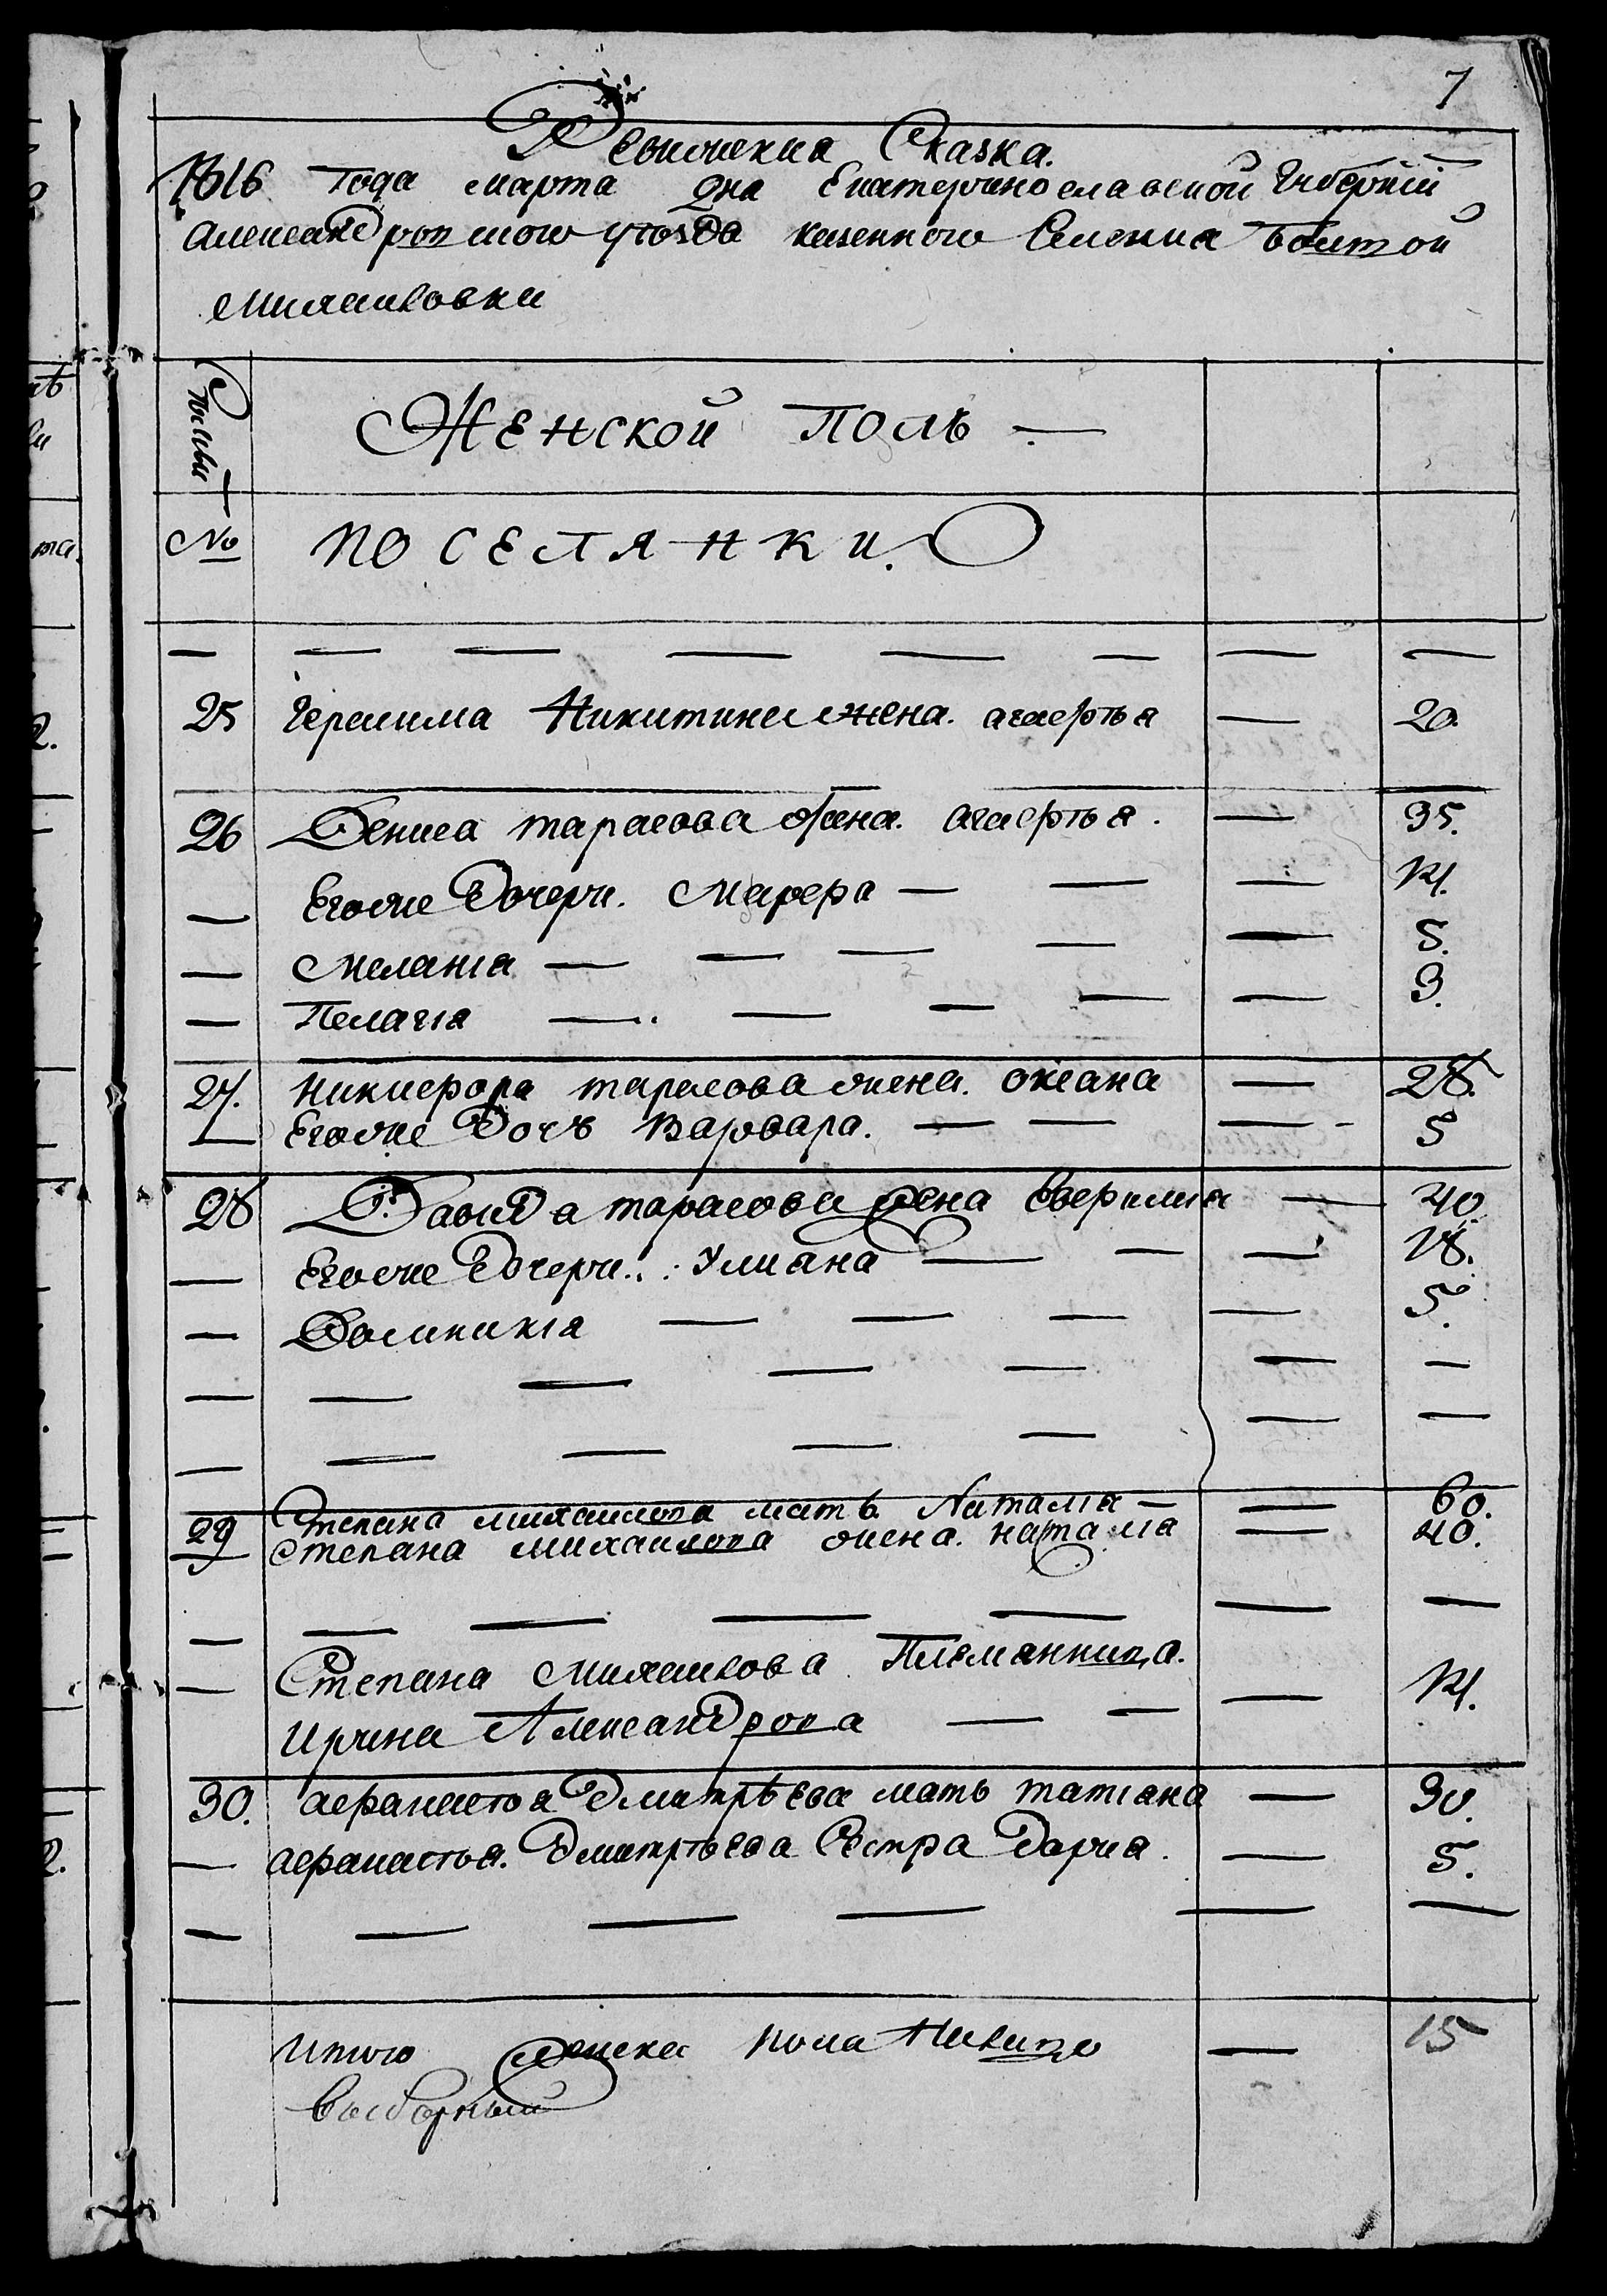 7
Ревижская Сказка.
1816 года марта дня Екатеринославской Губернїи
Александровского уезда казенного Селения
Михайловки
Семьи
Женской полъ —
№ ПОСЕЛЯНКИ.
— — — — — — — —
25 Герасима Никитина жена. агафья — 20
26 Дениса тарасова жена. агафья. — 35.
— Егоже Дочери. Марфа — — — 14.
— Меланїа — — — — — 5.
— Пелагїа — — — — — 3.
27. Никифора тарасова жена. оксана — 28.
— Егоже Дочь Варвара. — — — 5
28 Давида тарасова жена — 40
— Егоже Дочери. Улиана — — — 18.
— Домникїа — — — — 5.
— — — — — — —
— — — — — — —
29 Степана михайлова мать Наталїа — — 60.
Степана михайлова жена. наталїа — 40.
— — — — — — —
— Степана Михайлова Племянница.
Ирина Александрова — — — 14.
30. афанасья Дмитрѣева мать татїана — 30.
— афанасья. Дмитрьева Сестра Дарья. — 5.
— — — — — —
Итого женска пола Налицо — 15
Выборный